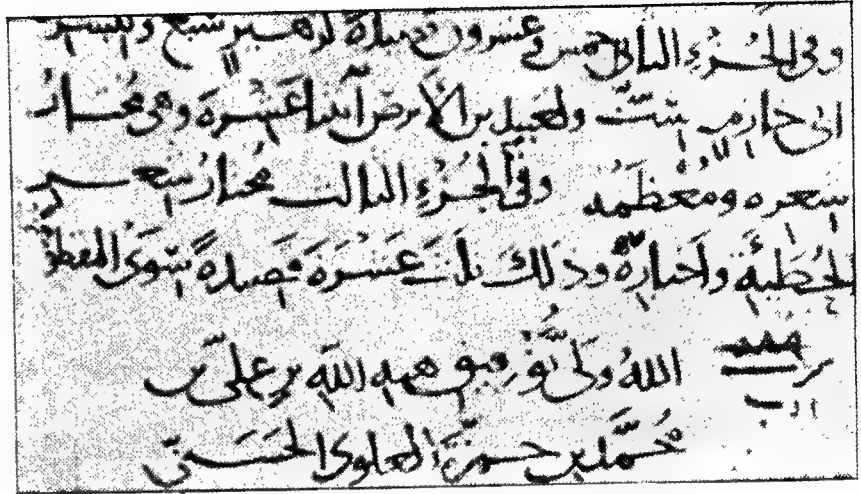 وفى الجزء الثانى خمس وعشرون قصيدة لزهير سبع وللبشر
الى خازم ست ولعبيد بن الأبرص اثنتا عشرة وهى مختار
شعره ومعظمه وفى الجزء الثالث مختار شعر
الحطيئة وأخباره وذلك ثلث عشرة قصيدة سوى المقطو
الله ولى توفيق هبه الله بن على بن
محمد بن حمزة العلوى الحسنى